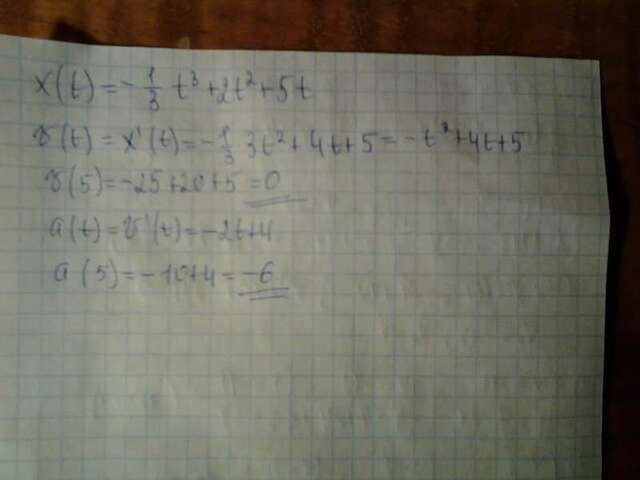 x(t)=-1/3 t³+2t²+5t
v(t)=x'(t)=-1/3 3t²+4t+5=-t²+4t+5
v(5)=-25+20+5=0
a(t)=v'(t)=-2t+4
a(5)=-10+4=-6